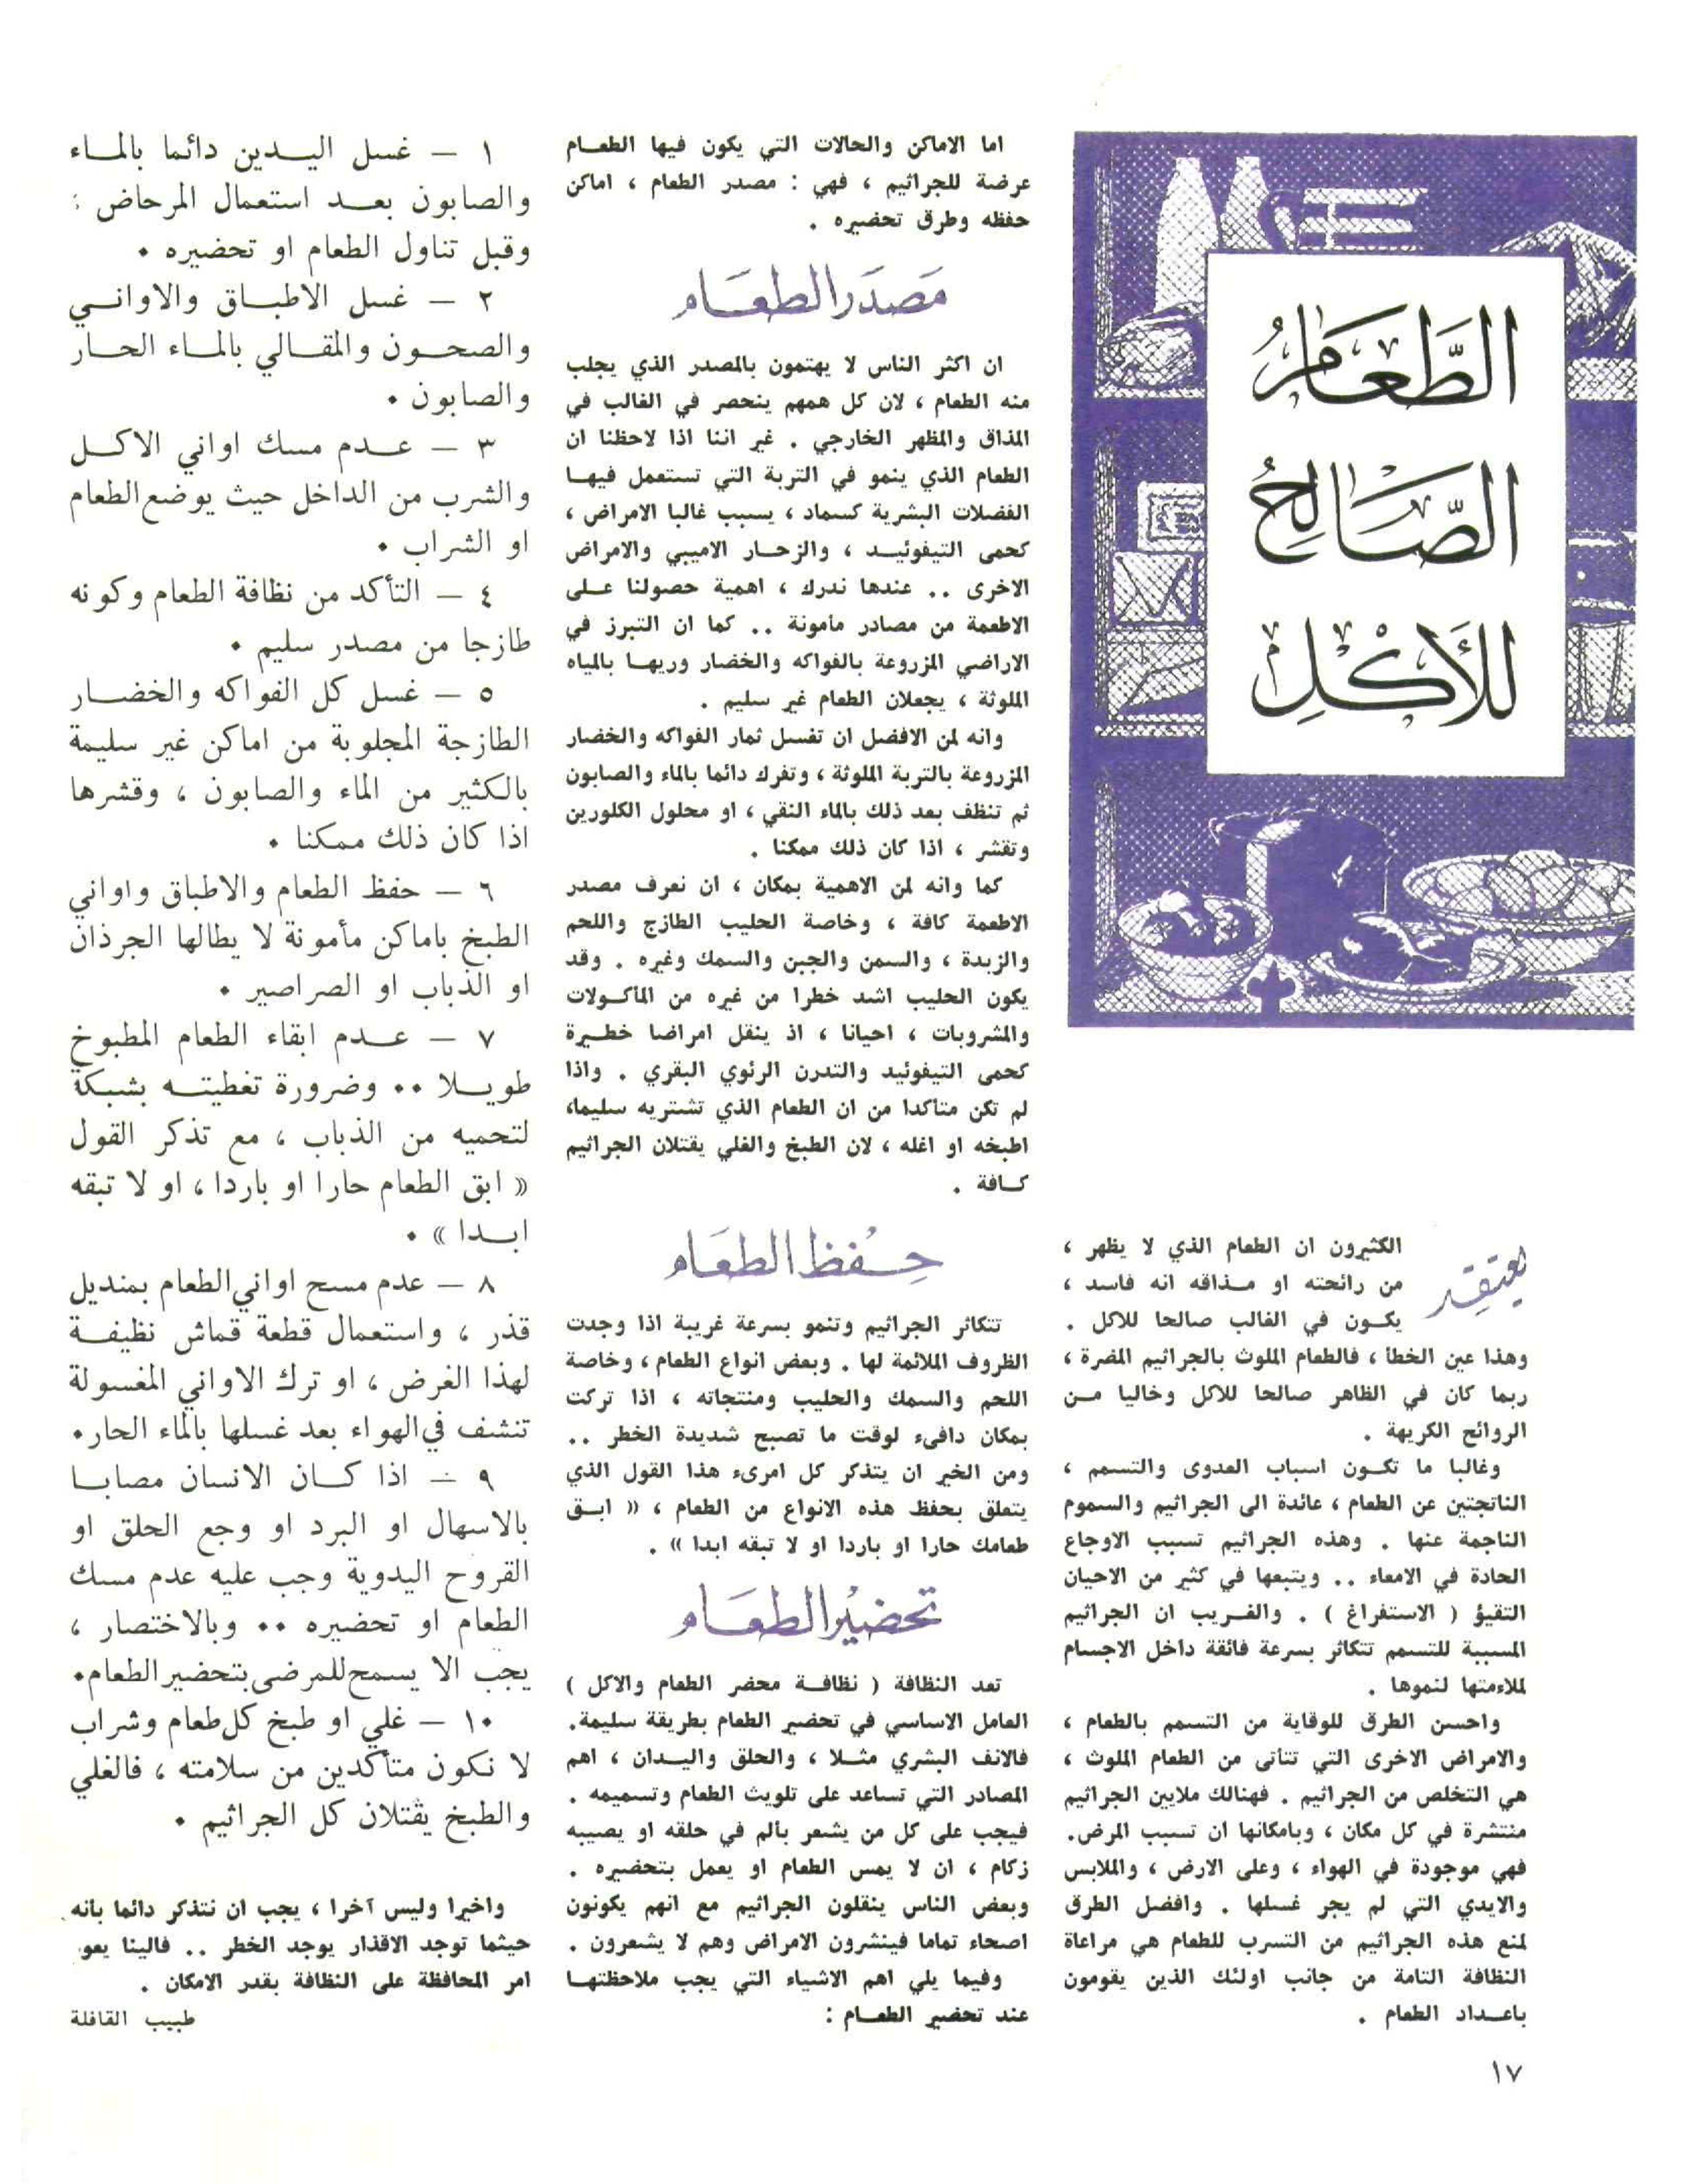 الطَّعَامُ
الصَّالِحُ
لِلأَكْلِ
يعتقد
الكثيرون ان الطعام الذي لا يظهر ،
من رائحته او مـذاقه انه فاسد ،
يكـون في الغالب صالحا للاكل .
وهذا عين الخطأ ، فالطعام الملوث بالجراثيم المضرة ،
ربما كان في الظاهر صالحا للاكل وخاليا مـن
الروائح الكريهة .
وغالبا ما تكـون اسباب العدوى والتسمم ،
الناتجتين عن الطعام ، عائدة الى الجراثيم والسموم
الناجمة عنها . وهذه الجراثيم تسبب الاوجاع
الحادة في الامعاء .. ويتبعها في كثير من الاحيان
التقيؤ ( الاستفراغ ) . والغـريب ان الجراثيم
المسببة للتسمم تتكاثر بسرعة فائقة داخل الاجسام
لملاءمتها لنموها .
واحسن الطرق للوقاية من التسمم بالطعام ،
والامراض الاخرى التي تتأتى من الطعام الملوث ،
هي التخلص من الجراثيم . فهنالك ملايين الجراثيم
منتشرة في كل مكان ، وبامكانها ان تسبب المرض.
فهي موجودة في الهواء ، وعلى الارض ، والملابس
والايدي التي لم يجر غسلها . وافضل الطرق
لمنع هذه الجراثيم من التسرب للطعام هي مراعاة
النظافة التامة من جانب اولئك الذين يقومون
باعـداد الطعام .
اما الاماكن والحالات التي يكون فيها الطعـام
عرضة للجراثيم ، فهي : مصدر الطعام ، اماكن
حفظه وطرق تحضيره .
مَصدَر الطعَـام
ان اكثر الناس لا يهتمون بالمصدر الذي يجلب
منه الطعام ، لان كل همهم ينحصر في الغالب في
المذاق والمظهر الخارجي . غير اننا اذا لاحظنا ان
الطعام الذي ينمو في التربة التي تستعمل فيهـا
الفضلات البشرية كسماد ، يسبب غالبا الامراض ،
كحمى التيفوئيـد ، والزحـار الاميبي والامراض
الاخرى .. عندها ندرك ، اهمية حصولنا عـلى
الاطعمة من مصادر مأمونة .. كما ان التبرز في
الاراضي المزروعة بالفواكه والخضار وريهـا بالمياه
الملوثة ، يجعلان الطعام غير سليم .
وانه لمن الافضل ان تغسل ثمار الفواكه والخضار
المزروعة بالتربة الملوثة ، وتفرك دائما بالماء والصابون
ثم تنظف بعد ذلك بالماء النقي ، او محلول الكلورين
وتقشر ، اذا كان ذلك ممكنا .
كما وانه لمن الاهمية بمكان ، ان نعرف مصدر
الاطعمة كافة ، وخاصة الحليب الطازج واللحم
والزبدة ، والسمن والجبن والسمك وغيره . وقد
يكون الحليب اشد خطرا من غيره من المأكـولات
والمشروبات ، احيانا ، اذ ينقل امراضا خطـيرة
كحمى التيفوئيد والتدرن الرئوي البقري . واذا
لم تكن متأكدا من ان الطعام الذي تشتريه سليما،
اطبخه او اغله ، لان الطبخ والغلي يقتلان الجراثيم
كـافة .
حِـفظ الطعَـام
تتكاثر الجراثيم وتنمو بسرعة غريبة اذا وجدت
الظروف الملائمة لها . وبعض انواع الطعام ، وخاصة
اللحم والسمك والحليب ومنتجاته ، اذا تركت
بمكان دافىء لوقت ما تصبح شديدة الخطر ..
ومن الخير ان يتذكر كل امرىء هذا القول الذي
يتعلق بحفظ هذه الانواع من الطعام ، « ابـق
طعامك حارا او باردا او لا تبقه ابدا » .
تحضيْر الطعَـام
تعد النظافة ( نظافـة محضر الطعام والاكل )
العامل الاساسي في تحضير الطعام بطريقة سليمة.
فالانف البشري مثـلا ، والحلق واليـدان ، اهم
المصادر التي تساعد على تلويث الطعام وتسميمه .
فيجب على كل من يشعر بألم في حلقه او يصيبه
زكام ، ان لا يمس الطعام او يعمل بتحضيره .
وبعض الناس ينقلون الجراثيم مع انهم يكونون
اصحاء تماما فينشرون الامراض وهم لا يشعرون .
وفيما يلي اهم الاشياء التي يجب ملاحظتهـا
عند تحضير الطعـام :
١ — غسل اليـدين دائما بالمـاء
والصابون بعـد استعمال المرحاض :
وقبل تناول الطعام او تحضيره .
٢ — غسل الاطبـاق والاوانـي
والصحـون والمقـالي بالمـاء الحـار
والصابون .
٣ — عـدم مسك اواني الاكـل
والشرب من الداخل حيث يوضع الطعام
او الشراب .
٤ — التأكد من نظافة الطعام وكونه
طازجا من مصدر سليم .
٥ — غسل كل الفواكه والخضـار
الطازجة المجلوبة من اماكن غير سليمة
بالكثير من الماء والصابون ، وقشرها
اذا كان ذلك ممكنا .
٦ — حفظ الطعام والاطباق واواني
الطبخ باماكن مأمونة لا يطالها الجرذان
او الذباب او الصراصير .
٧ — عـدم ابقاء الطعام المطبوخ
طويـلا .. وضرورة تغطيتـه بشبكة
لتحميه من الذباب ، مع تذكر القول
« ابق الطعام حارا او باردا ، او لا تبقه
ابـدا » .
٨ — عدم مسح اواني الطعام بمنديل
قذر ، واستعمال قطعة قماش نظيفـة
لهذا الغرض ، او ترك الاواني المغسولة
تنشف في الهواء بعد غسلها بالماء الحار.
٩ — اذا كـان الانسان مصابـا
بالاسهال او البرد او وجع الحلق او
القروح اليدوية وجب عليه عدم مسك
الطعام او تحضيره .. وبالاختصار ،
يجب الا يسمح للمرضى بتحضير الطعام.
١٠ — غلي او طبخ كل طعام وشراب
لا نكون متأكدين من سلامته ، فالغلي
والطبخ يقتلان كل الجراثيم .
واخيرا وليس آخرا ، يجب ان نتذكر دائما بأنه
حيثما توجد الاقذار يوجد الخطر .. فالينا يعو
امر المحافظة على النظافة بقدر الامكان .
طبيب القافلة
١٧